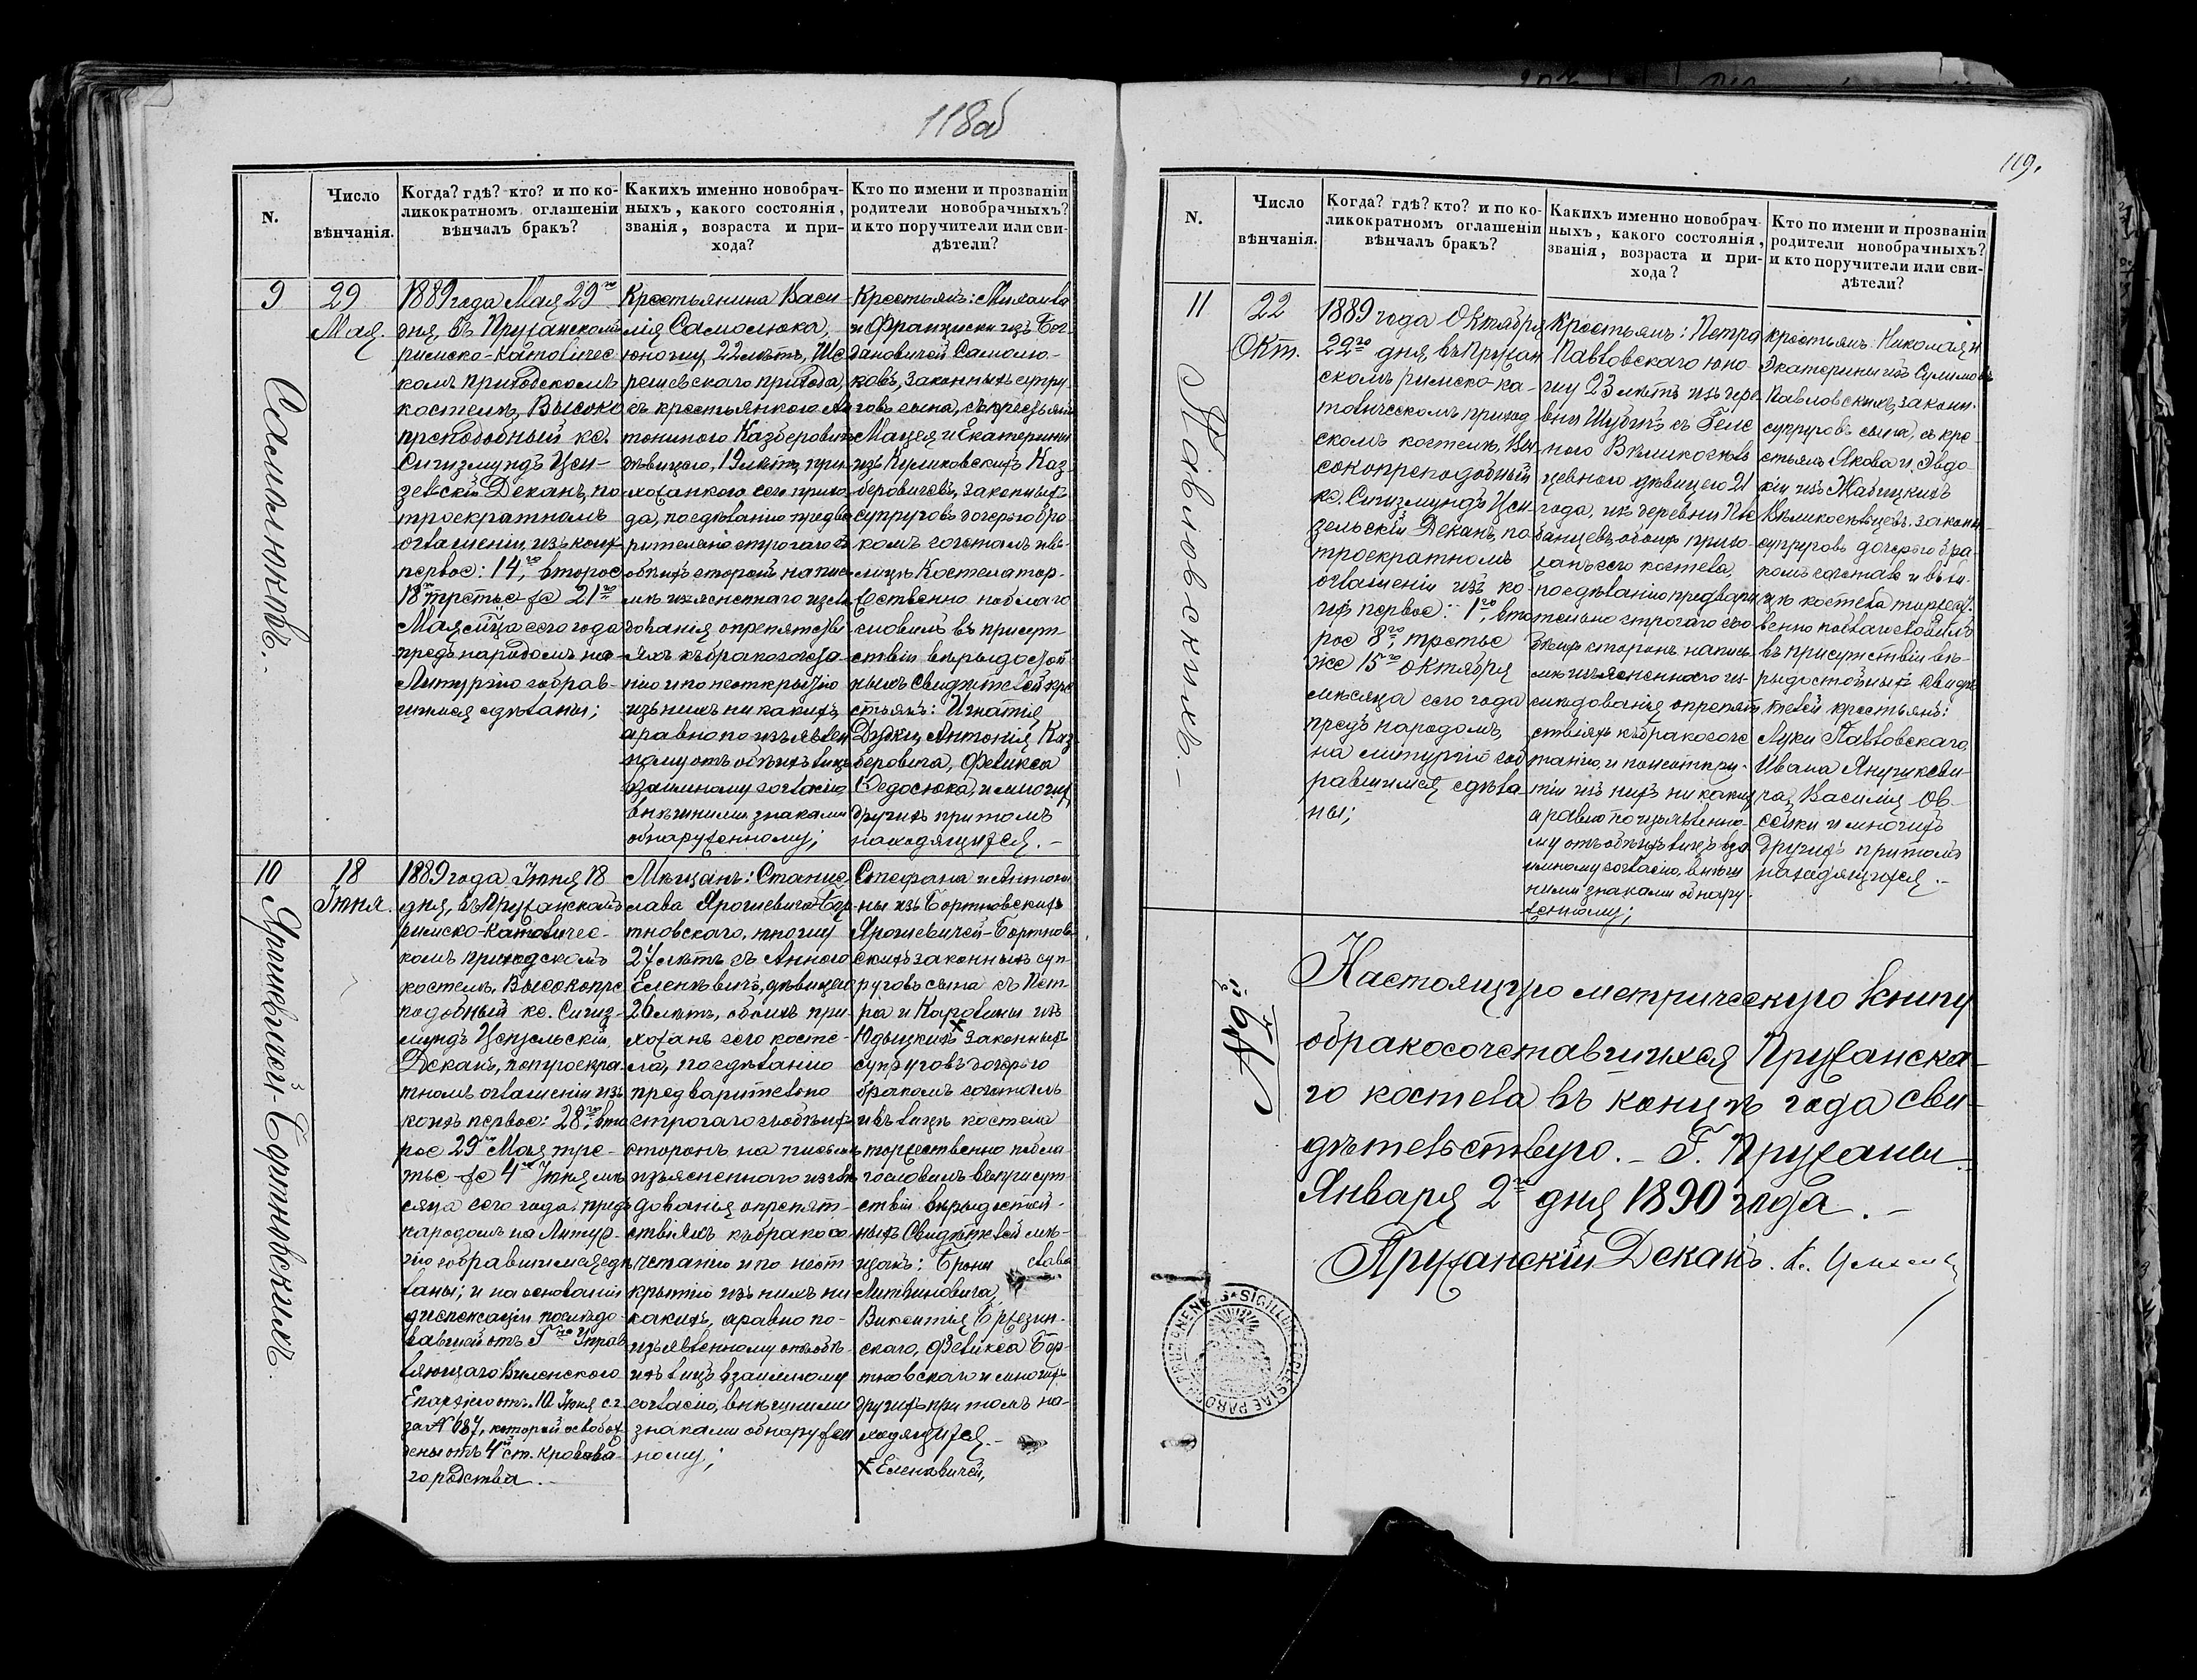 118об
N.
Число
вѣнчанія.
Когда? гдѣ? кто? и по ко-
ликократномъ оглашеніи
вѣнчалъ бракъ?
Какихъ именно новобрач-
ныхъ, какого состоянія,
званія, возраста и при-
хода?
Кто по имени и прозванію
родители новобрачныхъ?
и кто поручители или сви-
дѣтели?
9
Самолюковъ.
29
Мая.
1889 года Мая 29го
дня, въ Пружанскомъ
римско-католичес
комъ приходскомъ
костелѣ, Высоко
преподобный кс.
Сигизмундъ Цеи-
зельскій Деканъ, по
троекратномъ
оглашеніи, изъ коихъ
первое: 14го, второе
18го третье же 21го
Мая сего года
предъ народомъ на
Литургію собрав-
шимся сдѣланы;
Крестьянина Васи-
лія Самолюка,
юношу 22 лѣтъ, Ше
решевскаго прихода,
съ крестьянкою Ан
тониною Казберовичъ
дѣвицею, 19 лѣтъ, при-
хожанкою сего прихо
да, по сдѣланію предва
рительно строгаго съ
обѣихъ сторонъ на пись
мѣ изъясненнаго изслѣ
дованія о препятстві
яхъ къ бракосочета
нію и по неоткрытію
изъ нихъ ни какихъ
а равно по изъявлен
ному отъ обѣихъ лицъ
взаимному согласію
внѣшними знаками
обнаруженному;
Крестьянъ: Михаила
и Франциски изъ Бог
дановичей Самолю-
ковъ, законныхъ супру
говъ сына, съ крестьянъ
Мацея и Екатерины
изъ Куликовскихъ Каз
беровичевъ, законныхъ
супруговъ дочерью бра
комъ сочеталъ и въ
лицѣ Костела тор-
жественно поблаго
словилъ въ присут-
ствіи вѣрыдостой
ныхъ свидѣтелей кре
стьянъ: Игнатія
Дудки, Антонія Каз
беровича, Феликса
Ведосюка, и многихъ
другихъ притомъ
находящихся.-
10
Ярошевичей-Бортновскихъ
18
Іюня.
1889 года Іюня 18
дня, въ Пружанскомъ
римско-католичес-
комъ приходскомъ
костелѣ, Высокопре
подобный кс. Сигиз-
мундъ Цеизельскій,
Деканъ, по троекра
тномъ оглашеніи изъ
коихъ первое: 28го, вто
рое 29го Мая тре-
тье же 4го Іюня мѣ
сяца сего года, предъ
народомъ на Литур-
гію собравшимся сдѣ
ланы; и на основаніи
диспенсаціи послѣдо-
вавшей отъ Гна Управ
ляющаго Виленскою
Епархіею отъ 10 Іюня с.г.
за № 687, которой освобож
дены отъ 4й ст. кровна
го родства.-
Мѣщанъ: Станис
лава Ярошевича-Бор
тновскаго, юношу
27 лѣтъ съ Анною
Еленкевичъ, дѣвицею
26 лѣтъ, обоихъ при-
хожанъ сего косте-
ла, по сдѣланію
предварительно
строгаго съ обѣихъ
сторонъ на письмѣ
изъясненнаго изслѣ
дованія о препят-
ствіяхъ къ бракосо
четанію и по неот
крытію изъ нихъ ни
какихъ, а равно по-
изъявленному отъ обѣ-
ихъ лицъ взаимному
согласію, внѣшними
знаками обнаружен
ному;
Стефана и Антони
ны изъ Бортновскихъ
Ярошевичей-Бортнов
скихъ законныхъ суп-
руговъ сына съ Пет-
ра и Каролины изъ
Юдыцкихъ × законныхъ
супруговъ дочерью
бракомъ сочеталъ
и въ лицѣ костела
торжественно побла-
гословилъ въ присут-
ствіи вѣрыдостой-
ныхъ свидѣтелей мѣ-
щанъ: Бронислава
Литвиновича,
Викентія Брезин-
скаго, Феликса Бор-
тновскаго и многихъ
другихъ притомъ на-
ходящихся.-
× Еленкевичей,
119.
N.
Число
вѣнчанія.
Когда? гдѣ? кто? и по ко-
ликократномъ оглашеніи
вѣнчалъ бракъ?
Какихъ именно новобрач-
ныхъ, какого состоянія,
званія, возраста и при-
хода?
Кто по имени и прозванію
родители новобрачныхъ?
и кто поручители или сви-
дѣтели?
11
Павловскихъ.-
22
Окт.
1889 года Октября
22го дня въ Пружан
скомъ римско-ка-
толическомъ приход
скомъ костелѣ, Вы-
сокопреподобный
кс. Сигизмундъ Цеи-
зельскій Деканъ, по
троекратномъ
оглашеніи изъ ко-
ихъ первое: 1го, вто
рое 8го, третье
же 15го Октября
мѣсяца сего года
предъ народомъ,
на литургію соб
равшимся сдѣла
ны;
Крестьянъ: Петра
Павловскаго юно-
шу 23 лѣтъ изъ дере
вни Шубичъ съ Геле
ною Великосѣль
цевною дѣвицею 21
года, изъ деревни
обоихъ прихо-
жанъ сего костела,
по сдѣланію предвари
тельно строгаго съ о
бѣихъ сторонъ на пись
мѣ изъясненнаго из-
слѣдованія о препят
ствіяхъ къ бракосоче
танію, и по неоткры-
тіи изъ нихъ ни какихъ
а равно по изъявленно-
му отъ обѣихъ лицъ вза
имному согласію, внѣш
ними знаками обнару-
женному;
крестьянъ Николая и
Екатерины изъ Сулимовъ
Павловскихъ, законн.
супруговъ сына, съ кре-
стьянъ Якова и Эвдо-
кіи изъ Жабицкихъ
Великосѣльцевъ законн-
супруговъ дочерью бра-
комъ сочеталъ и въ ли-
цѣ костела торжест-
венно поблагословилъ
въ присутствіи вѣ-
рыдостойныхъ свидѣ
телей крестьянъ:
Луки Павловскаго,
Ивана Янушкеви-
ча, Василія Ов-
сейки и многихъ
другихъ притомъ
находящихся.-
Настоящую метрическую книгу
обракосочетавшихся Пружанска-
го костела въ концѣ года сви-
дѣтельствую.- Г. Пружаны.
Января 2го дня 1890 года.-
Пружанскій Деканъ. К.
SIGILLUM ECCLESIAE PAROCH. PRUZANENSIS